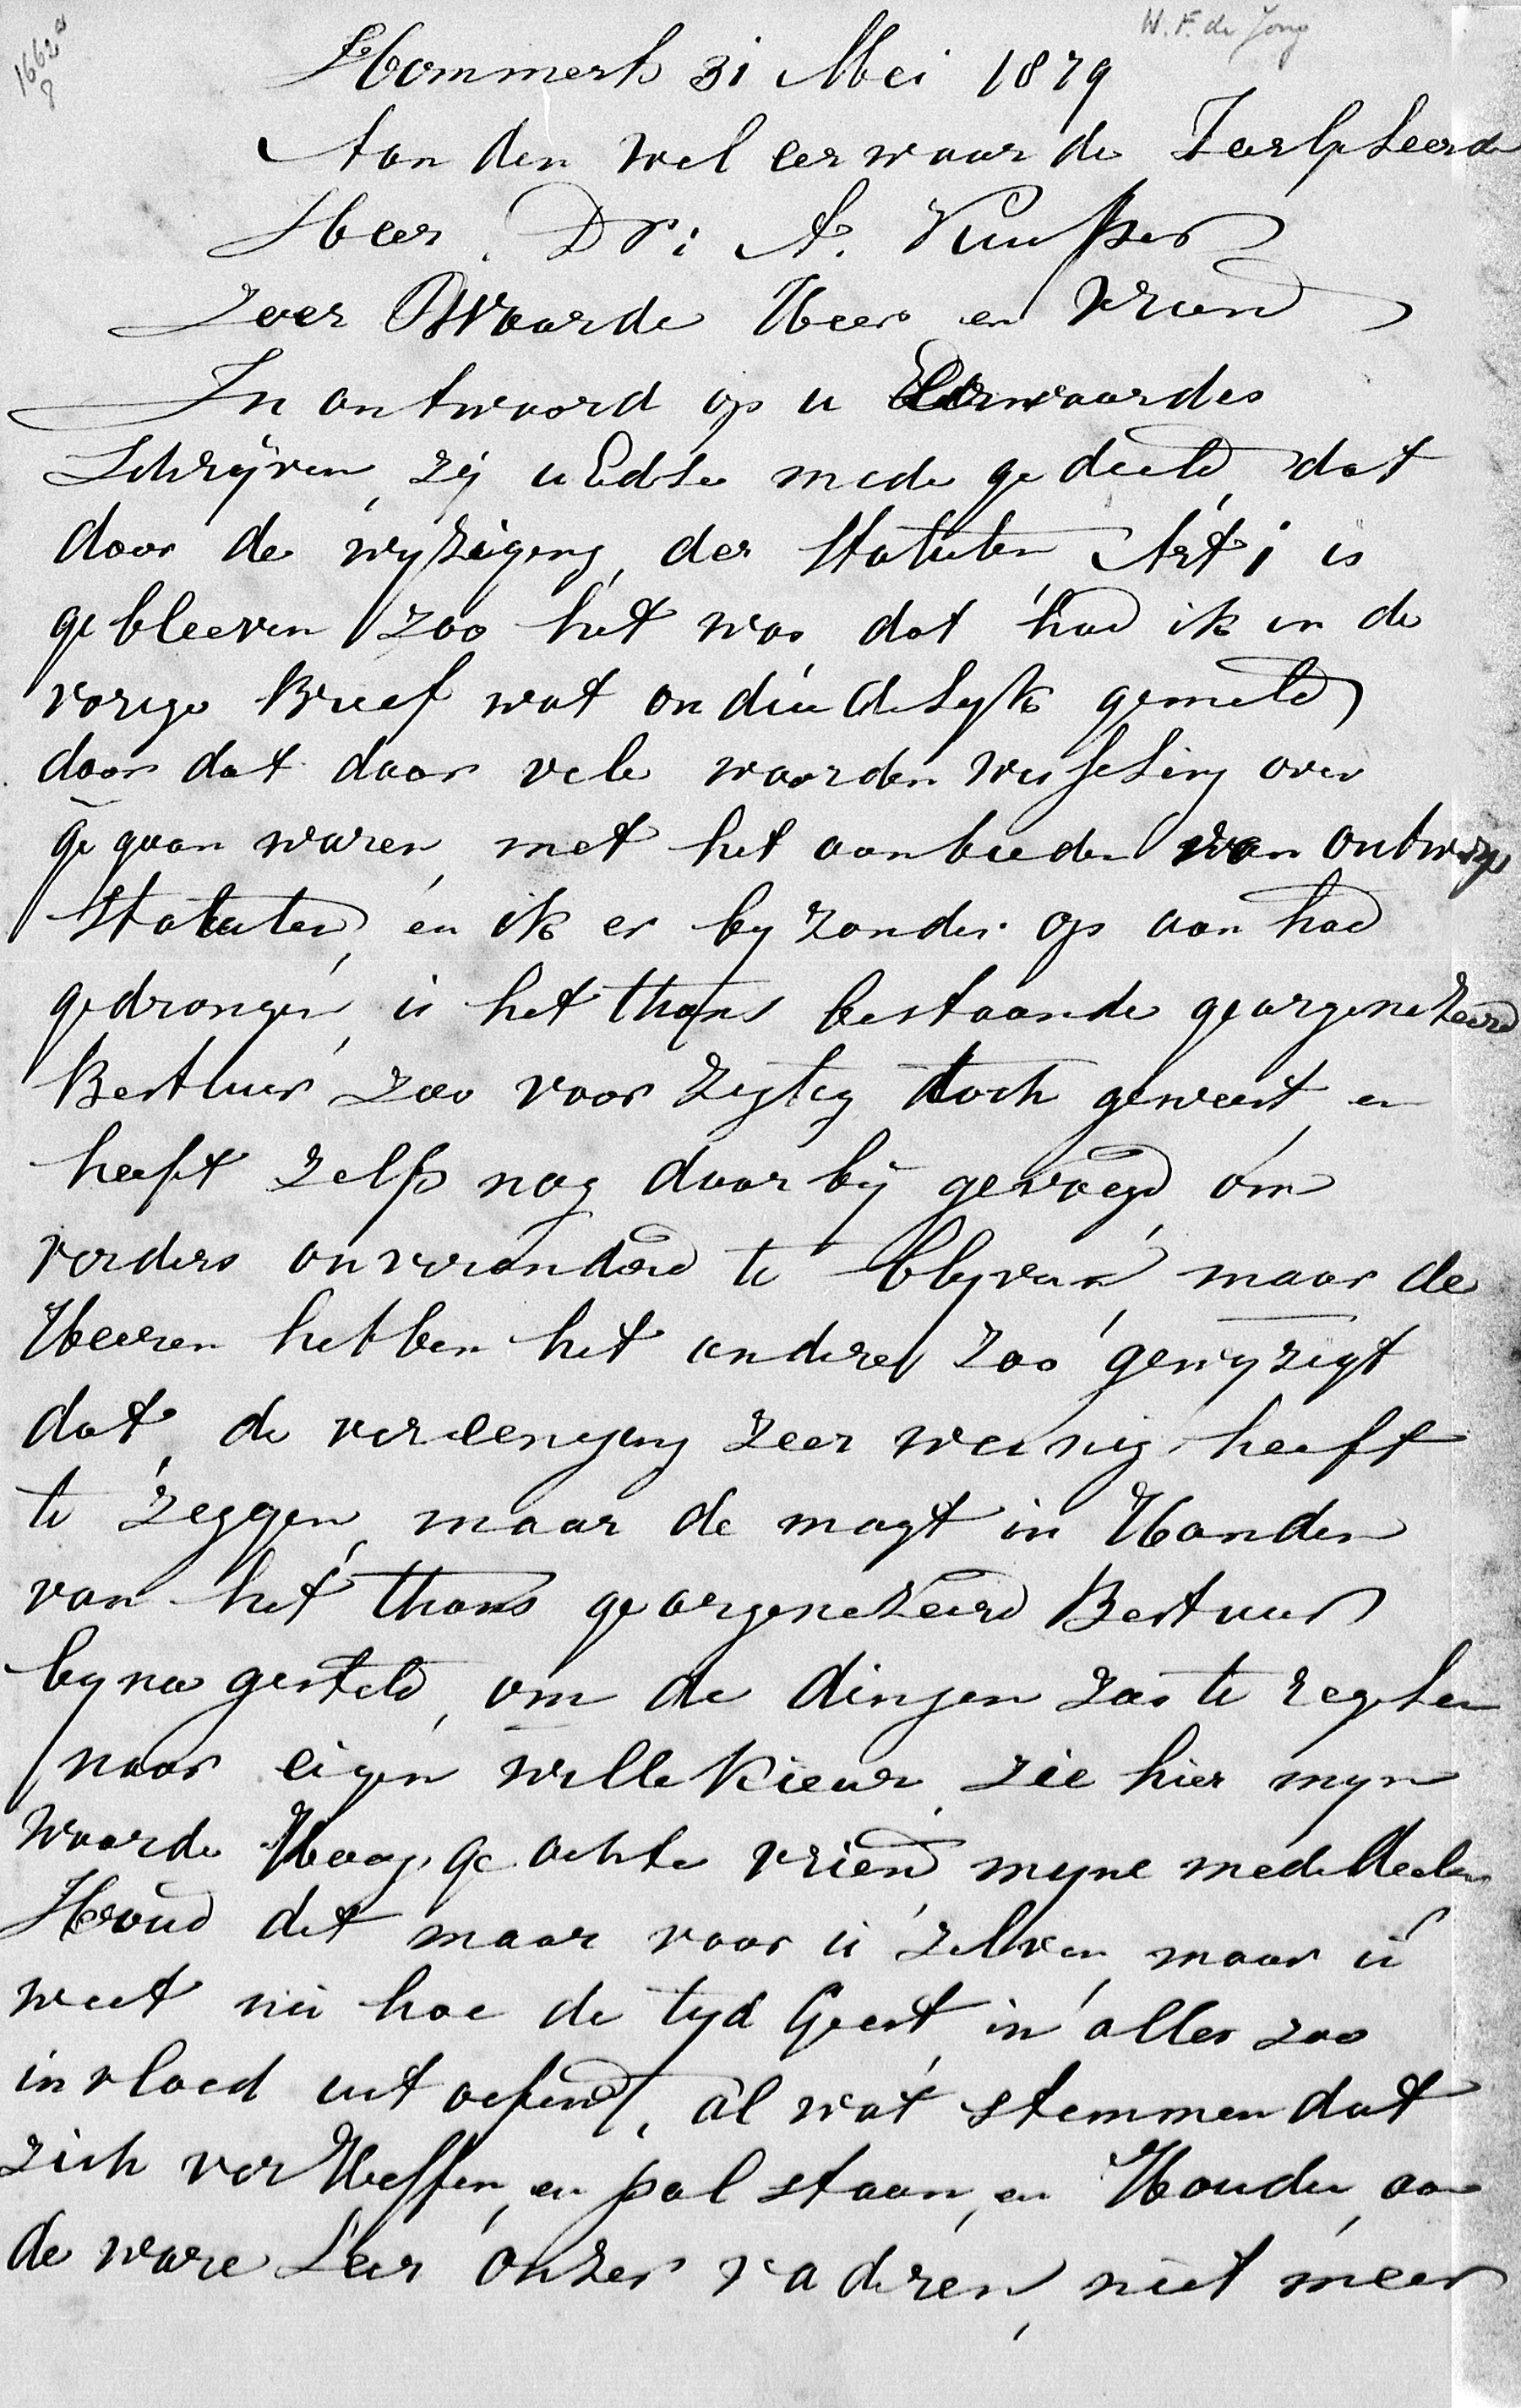 1662a
8
W. F. de Jong
Hommerts 31 Mei 1879
Aan den wel eerwaarde Zeer
Heer. Dr: A. Kuyper
Zeer Waarde Heer en Vriend
In antwoord op u Eerwaardes
Schrijven, zij uEdle mede gedeeld, dat
door de wyziging, der Statuten Art 1 is
gebleeven zoo het was dat had ik in de
vorige Brief wat onduidelyk gemeld
door dat daar vele woorden wisseling over
gegaan waren, met het aanbieden van ontwerp
Statuten, en ik er by zonder op aan had
gedrongen, is het thans bestaande georgeneseerd
Bestuur zoo voor zigtig toch geweest, en
heeft zelfs nog daar bij gevoegd om
verders onveranderd te blyven, maar de
Heeren hebben het andere zoo gewyzigt
dat, de vereenigeng zeer weinig heeft
te zeggen, maar de magt in Handen
van het thans georgeneseerd Bestuur
byna gesteld, om de dingen zoo te regelen
naar eigen willekieur, zie hier myn
waarde Hoog ge achte vriend myne mededeelen
Houd dit maar voor u zelven, maar u
weet nu hoe de tyd Geest, in alles zoo
invloed uit oefend, al wat stemmen dat
zich ver Heffen, en pal staan, en Houden aan
de ware Leer onzer vaderen, niet meer